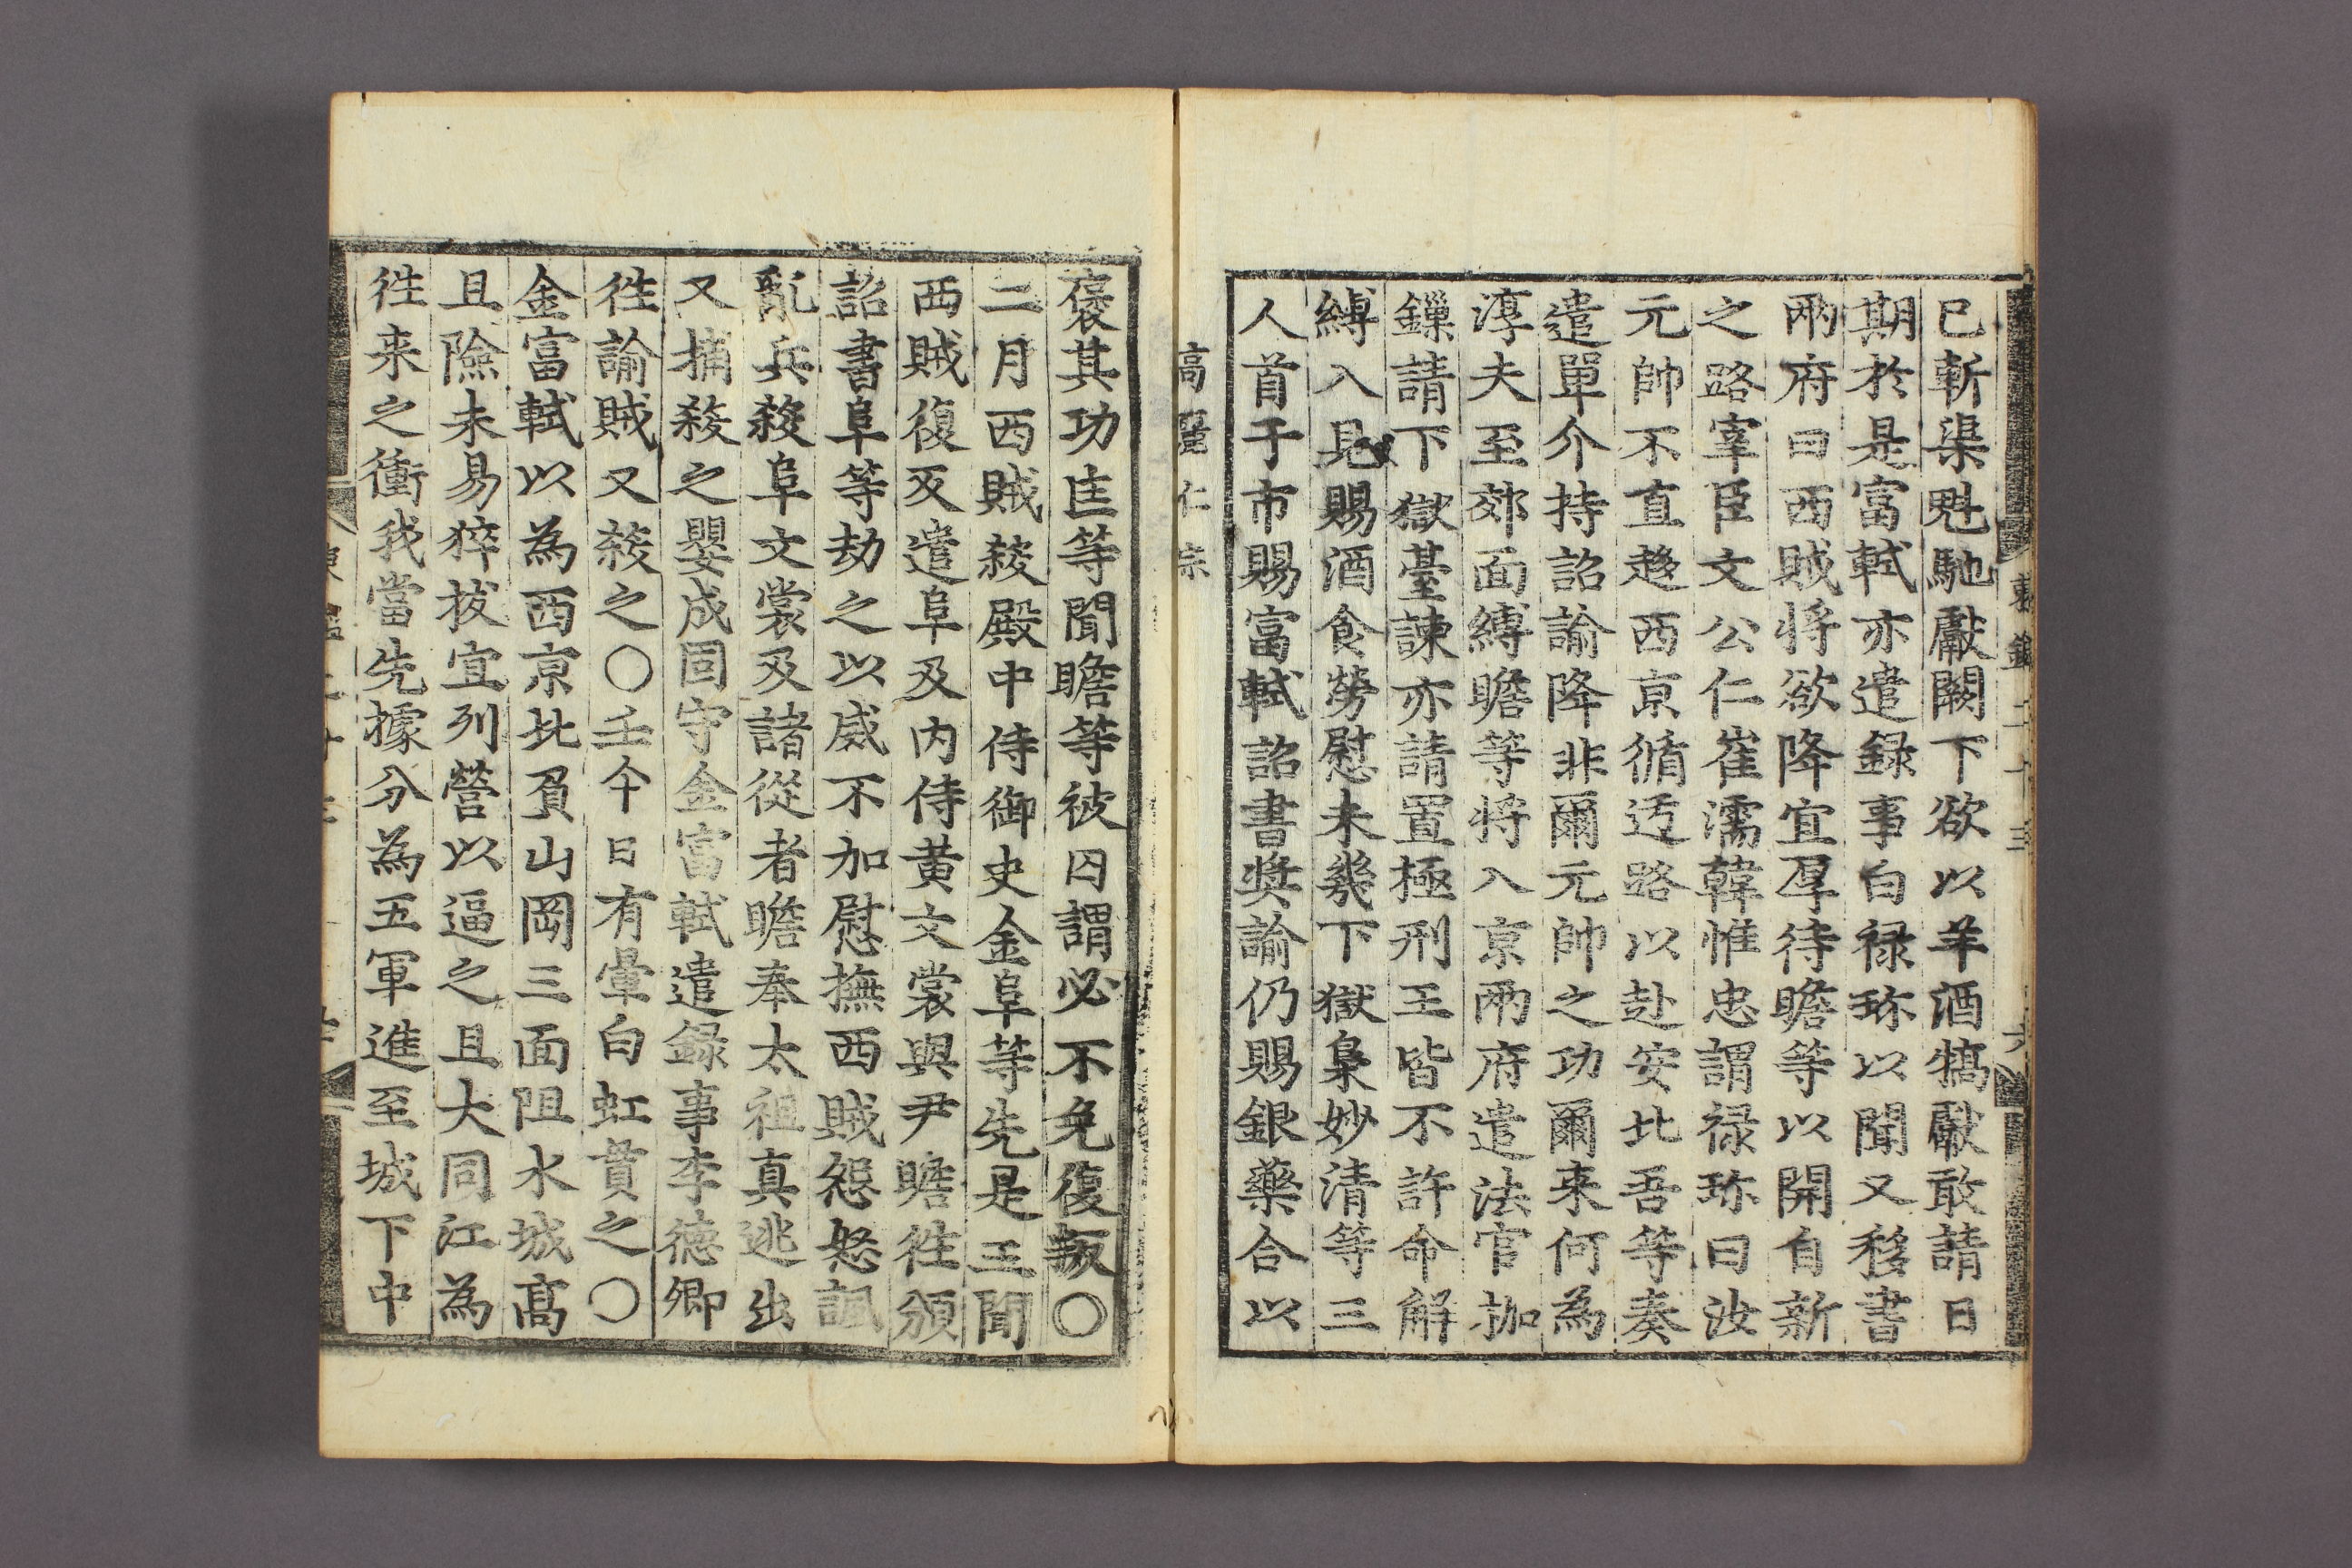 巳斬渠魁馳獻闕下欲以羊酒犒獻敢請日
期於是富軾亦遣録事白禄珎以聞又移書
兩府曰西賊将欲降宜厚待瞻等以開自新
之路宰臣文公仁崔濡韓惟忠謂禄珎曰汝
元帥不直趍西亰循迂路以赴安北吾等奏
遣單介持詔諭降非爾元帥之功爾来何為
淳夫至郊面縛瞻等将入亰兩府遣法官枷
鏁請下獄臺諫亦請置極刑王皆不許命解
縛入見賜酒食勞慰未幾下獄梟妙清等三
人首于市賜富軾詔書奬諭仍賜銀藥合以
高麗仁宗
褒其功匡等聞瞻等被囚謂必不免復叛〇
二月西賊殺殿中侍御史金阜等先是王聞
西賊復叛遣阜及内侍黄文裳與尹瞻徃頒
詔書阜等劫之以威不加慰撫西賊怨怒諷
亂兵殺阜文裳及諸從者瞻奉太祖真逃出
又捕殺之嬰成固守金富軾遣録事李德卿
徃諭賊又殺之〇壬午日有暈白虹貫之〇
金富軾以為西亰北負山岡三面阻水城髙
且險未易猝拔宜列營以逼之且大同江為
徃来之衝我當先據分為五軍進至城下中